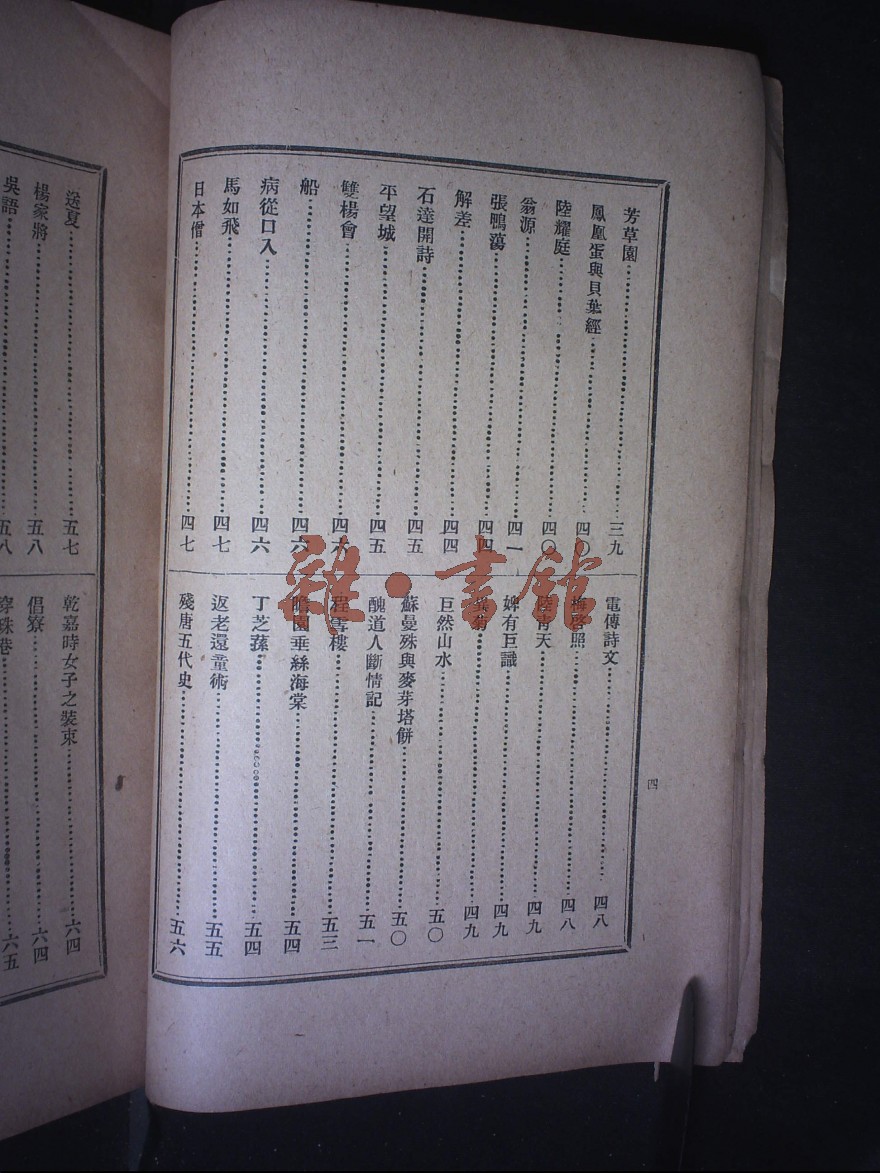 芳草園 三九
鳳凰蛋與貝葉經 四〇
陸耀庭 四〇
翁源 四一
張鴨蕩 四四
解差 四四
石達開詩 四五
平望城 四五
雙楊會 四六
船 四六
病從口入 四六
馬如飛 四七
日本僧 四七
電傳詩文 四八
梅啓照 四八
陸南天 四九
婢有巨識 四九
四九
巨然山水 五〇
蘇曼殊與麥芽塔餅 五〇
醜道人斷情記 五一
程雪樓 五三
瞻園垂絲海棠 五四
丁芝蓀 五四
返老還童術 五五
殘唐五代史 五六
四
送夏 五七
楊家將 五八
吳語 五八
乾嘉時女子之裝束 六四
倡寮 六四
穿珠巷 六五
雜·書館